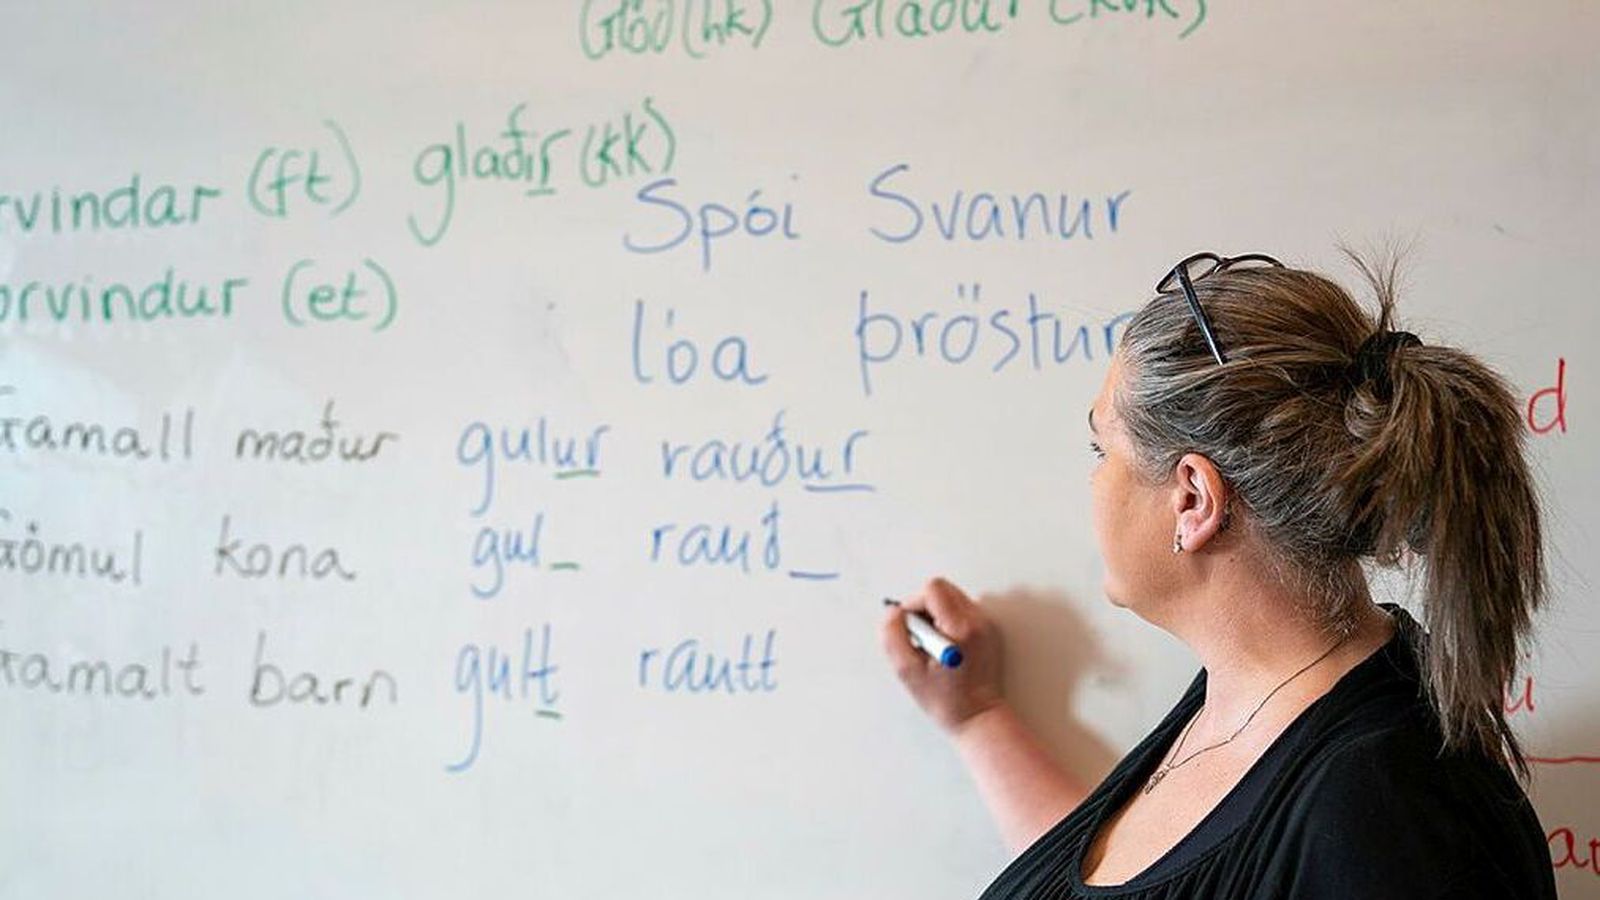 Glöð (hk) Glaður (kvk)
rvindar (ft) glaðir (kk)
orvindur (et)
Spói Svanur
lóa þröstur
Gamall maður gulur rauður
Gömul kona gul_ rauð_
Gamalt barn gult rautt
d